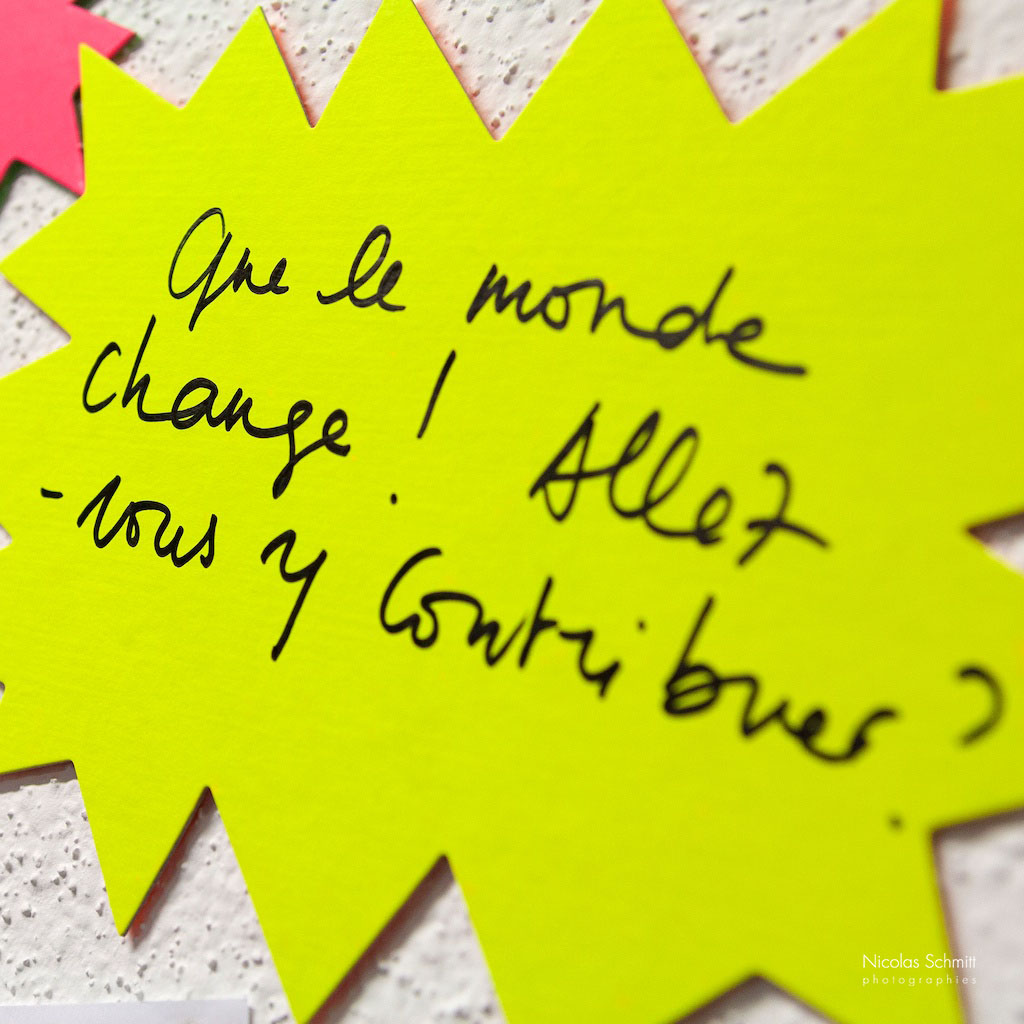 Que le monde
change ! Allez
-vous y contribuer ?
Nicolas Schmitt
photographies